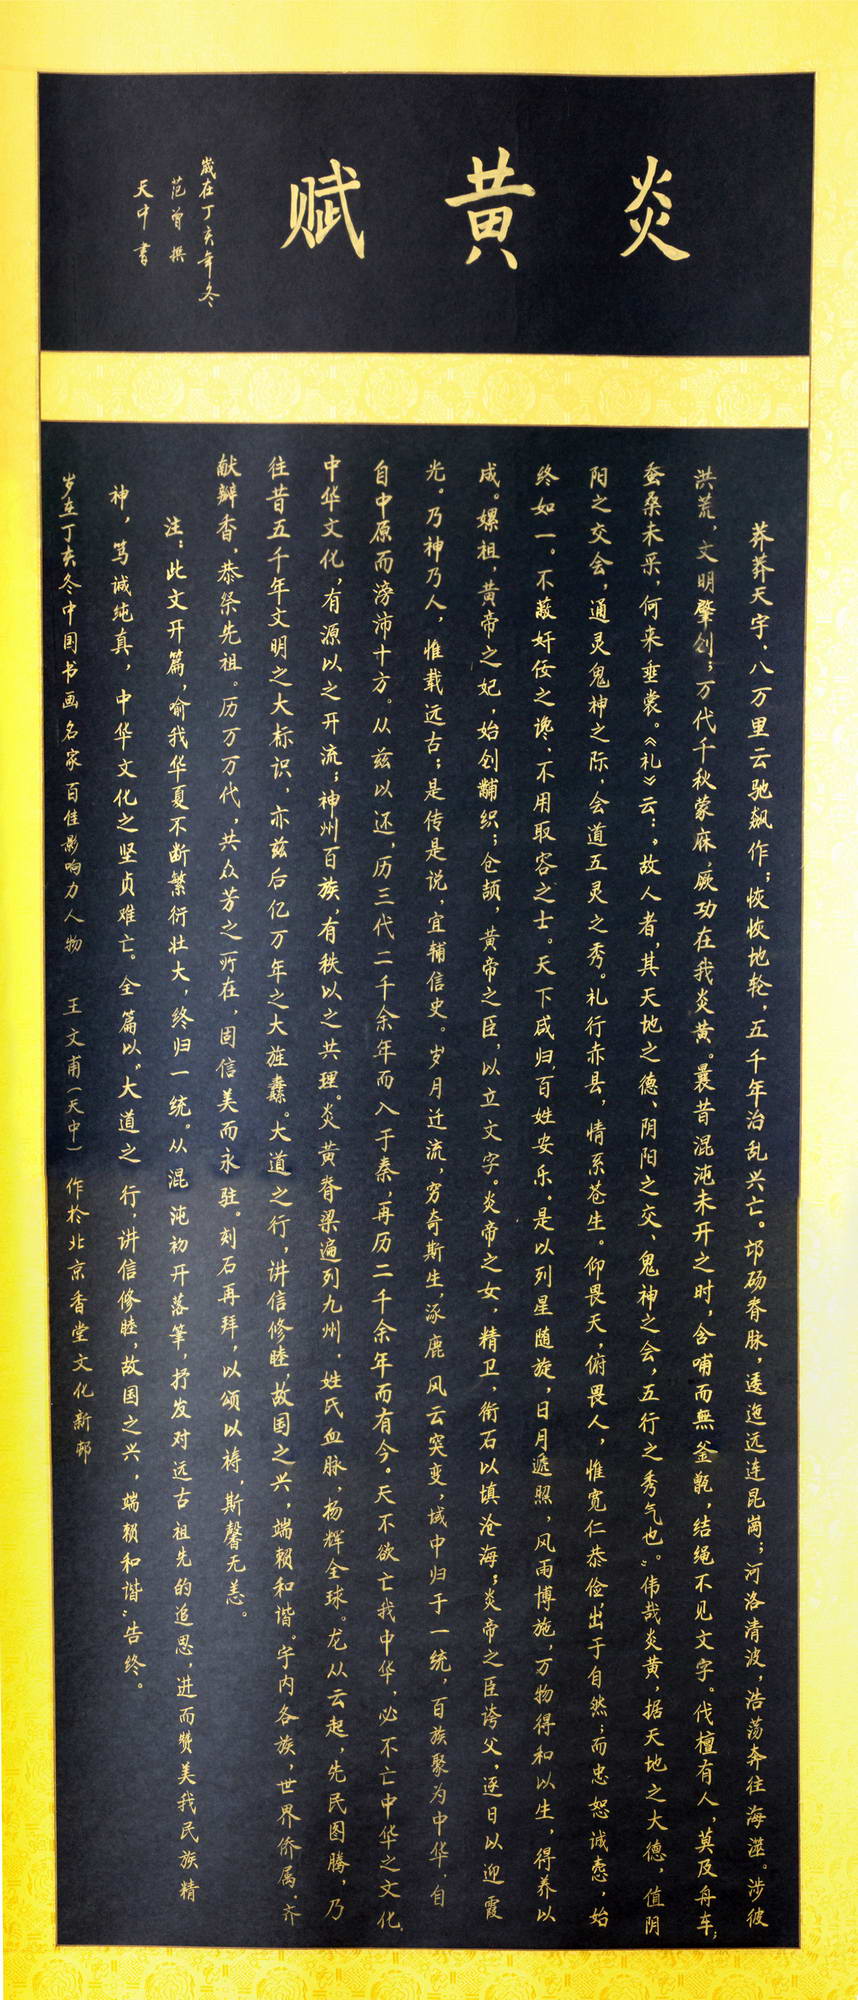 炎黄赋
歲在丁亥年冬
范曾撰
天中書
莽莽天宇，八万里云驰飙作；恢恢地轮，五千年治乱兴亡。邙砀脊脉，逶迤远连昆岗；河洛清波，浩荡奔往海滋。涉彼
洪荒，文明肇创；万代千秋蒙庥，厥功在我炎黄。曩昔混沌未开之时，含哺而無釜甑，结绳不见文字。伐檀有人，莫及舟车；
蚕桑未采，何来垂裳。《礼》云：“故人者，其天地之德、阴阳之交、鬼神之会，五行之秀气也”。伟哉炎黄，据天地之大德，值阴
阳之交会，通灵鬼神之际，会道五灵之秀。礼行赤县，情系苍生。仰畏天，俯畏人，惟宽仁恭俭，出于自然；而忠恕诚悫，始
终如一。不蔽奸佞之谗，不用取容之士。天下咸归，百姓安乐。是以列星随旋，日月遞照，风雨博施，万物得和以生，得养以
成。嫘祖，黄帝之妃，始创黼织；仓颉，黄帝之臣，以立文字。炎帝之女，精卫，衔石以填沧海；炎帝之臣夸父，逐日以迎霞
光。乃神乃人，惟载远古；是传是说，宜辅信史。岁月迁流，穷奇斯生，涿鹿风云突变，域中归于一统，百族聚为中华，自
自中原而滂沛十方。从兹以还，历三代二千余年而入于秦，再历二千余年而有今。天不欲亡我中华，必不亡中华之文化，
中华文化，有源以之开流；神州百族，有秩以之共理。炎黄脊梁遍列九州，姓氏血脉，杨辉全球。龙从云起，先民图腾，乃
往昔五千年文明之大标识，亦兹后亿万年之大旌纛。大道之行，讲信修睦，故国之兴，端赖和谐。宇内各族，世界侨属，齐
献瓣香，恭祭先祖。历万万代，共众芳之所在，固信美而永驻。刻石再拜，以颂以祷，斯馨无恙。
注：此文开篇，喻我华夏不断繁衍壮大，终归一统。从混沌初开落筆，抒发对远古祖先的追思，进而赞美我民族精
神，笃诚纯真，中华文化之坚贞难亡。全篇以“大道之行，讲信修睦，故国之兴，端赖和谐”告终。
岁在丁亥冬中国书画名家百佳影响力人物 王文甫（天中）作於北京香堂文化新邨